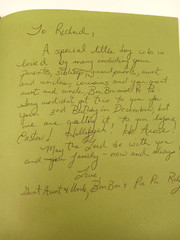 To Richard,
A special little boy who is
loved by many including your
parents, siblings, grandparents, aunt
and uncles, cousins and your great
aunt and uncle Bon Bon and
didn't get this to you for
your 3rd Birthday in December, but
we are getting it to you before
Easter! Hallelujah! He Arose!
May the Lord be with you
and your family - now and always
Love
Great Aunt & Uncle, Bon Bon &